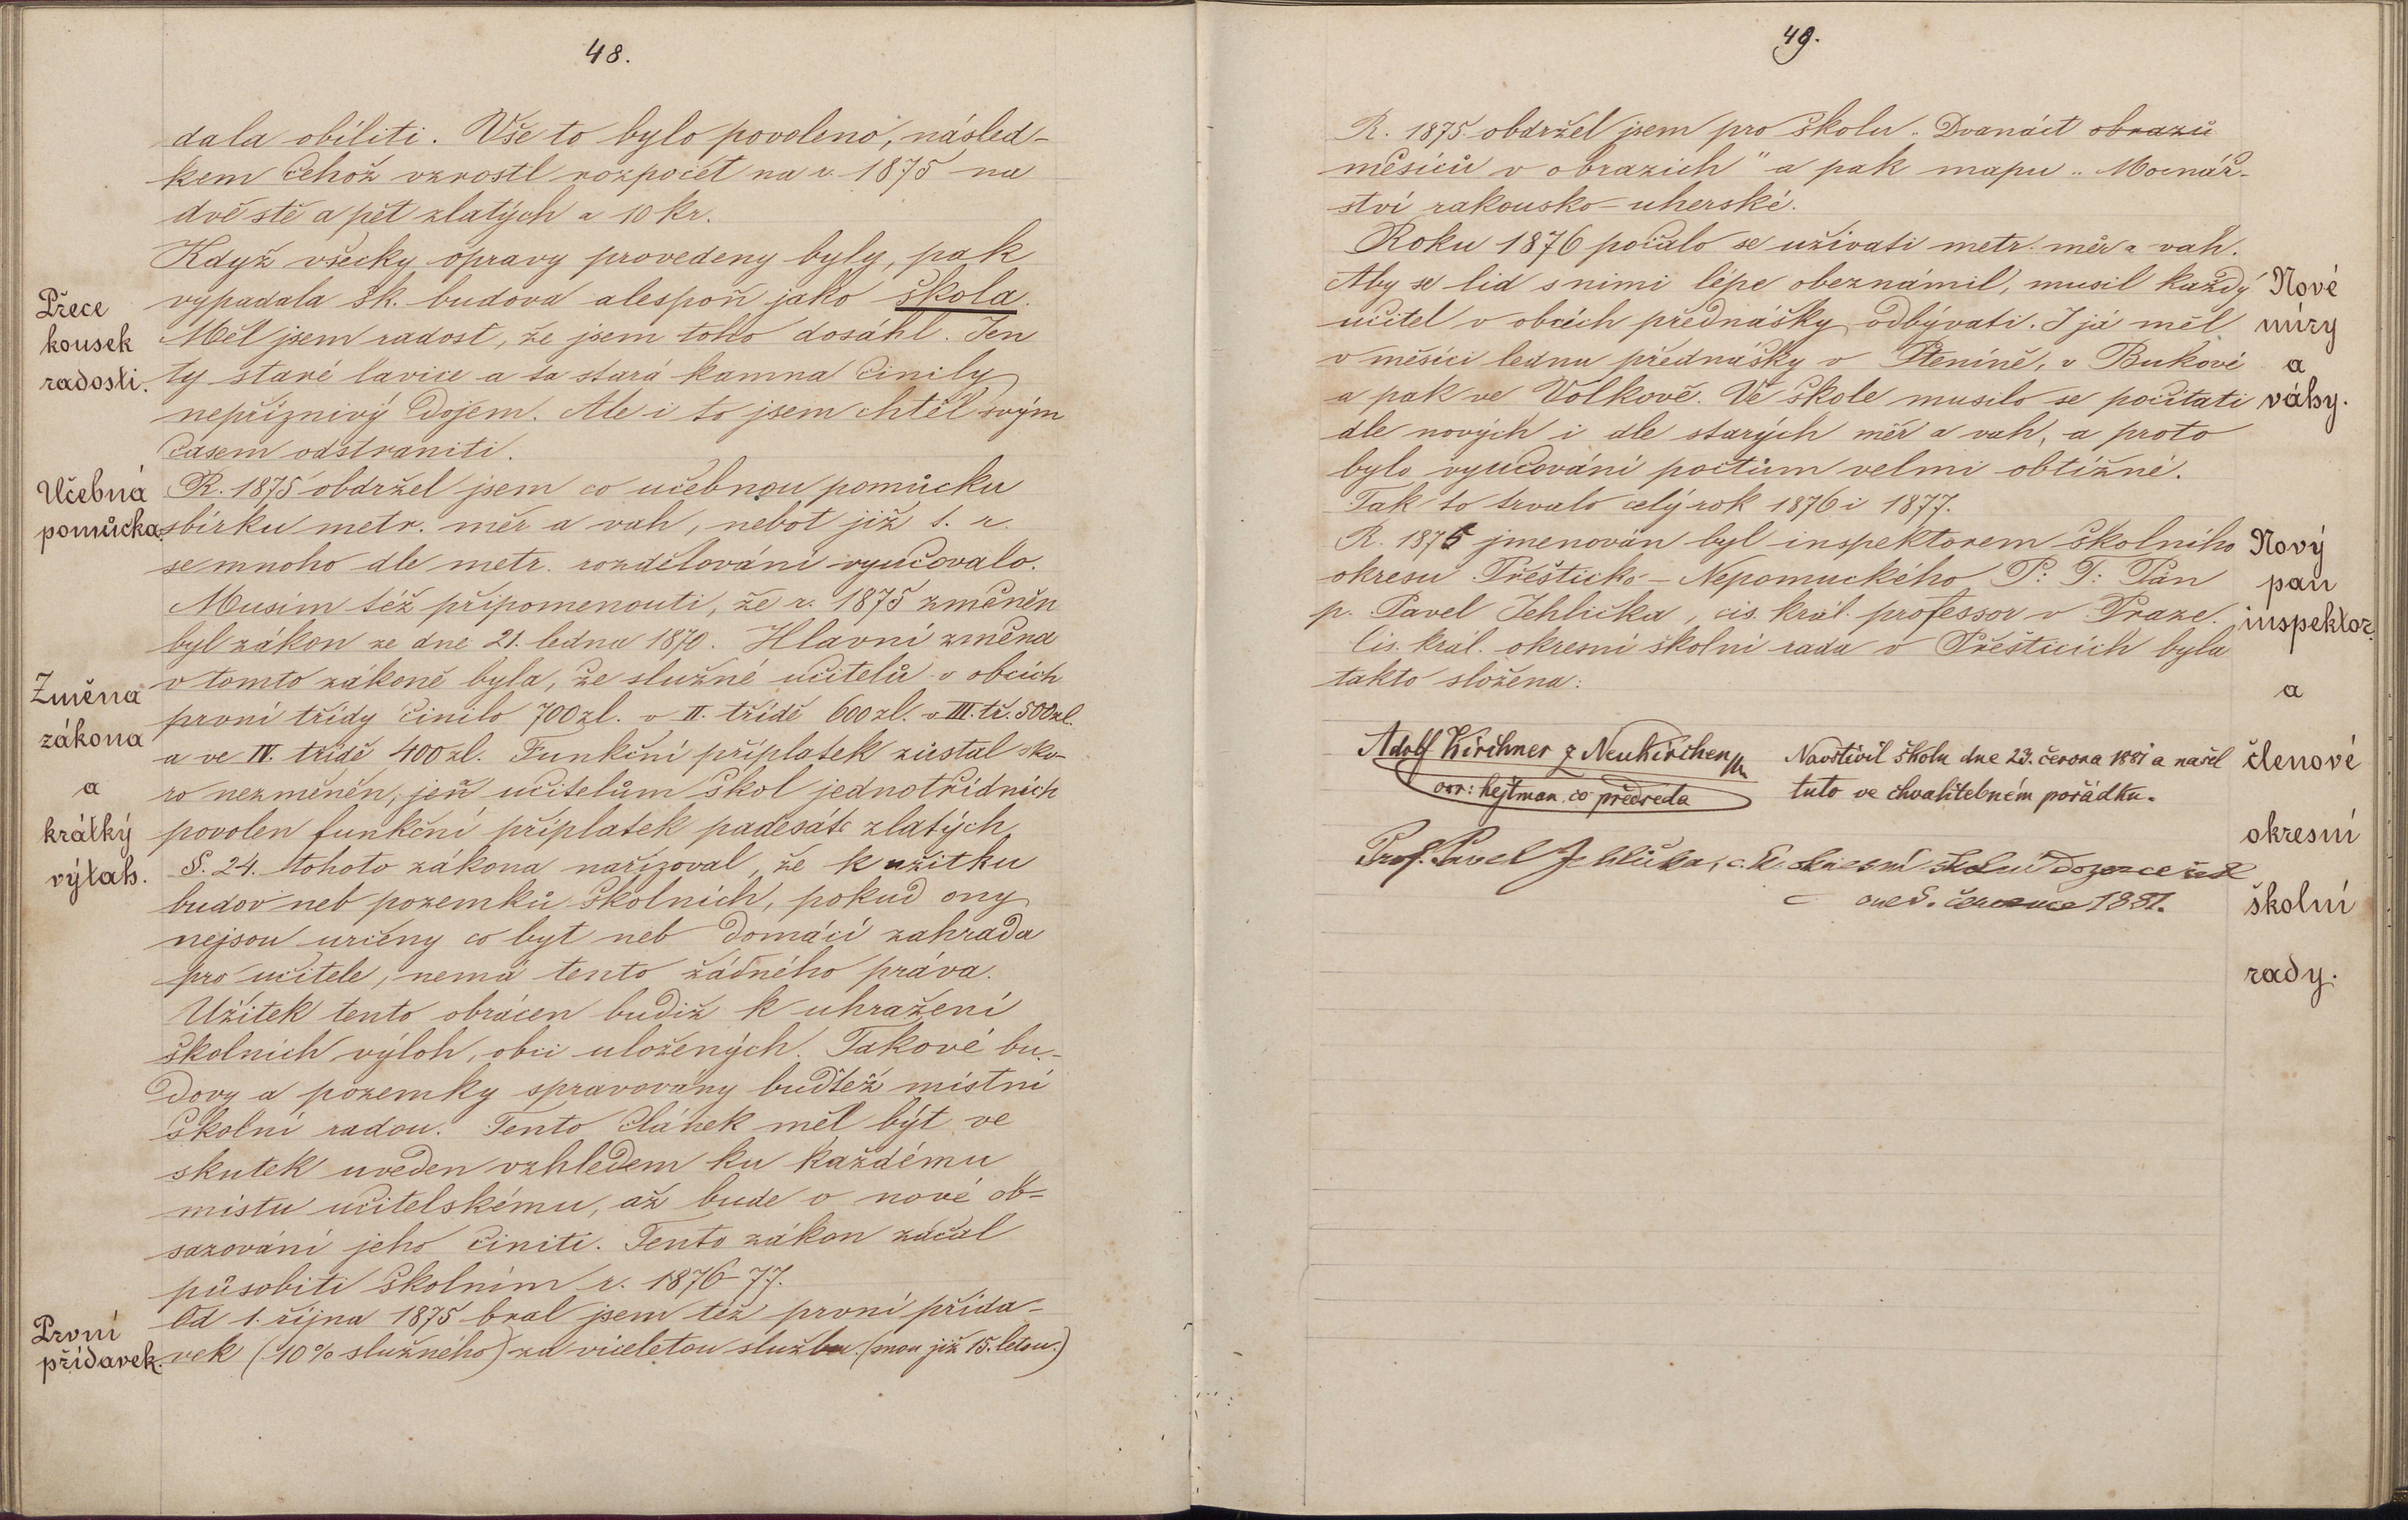 48.
dala obíliti. Vše to bylo povoleno, násled-
kem čehož vzrostl rozpočet na r. 1875 na
dvě stě a pět zlatých a 10 kr.
Když všecky opravy provedeny byly, pak
vypadala šk. budova alespoň jako škola.
Přece
kousek
radosti.
Měl jsem radost, že jsem toho dosáhl. Jen
ty staré lavice a ta stará kamna činily
nepříznivý dojem. Ale i to jsem chtěl svým
časem odstraniti.
Učebná
pomůcka.
R. 1875 obdržel jsem co učebnou pomůcku
sbírku metr. měr a vah, neboť již t. r.
se mnoho dle metr. rozdělování vyučovalo.
Musím též připomenouti, že r. 1875 změněn
byl zákon ze dne 21. ledna 1870. Hlavní změna
Změna
zákona
a
krátký
výtah.
v tomto zákoně byla, že služné učitelů v obcích
první třídy činilo 700 zl. v II. třídě 600 zl. v III. tř. 500 zl.
a ve IV. třídě 400 zl. Funkční příplatek zůstal sko-
ro nezměněn, jen učitelům škol jednotřídních
povolen funkční příplatek padesáti zlatých.
§. 24. tohoto zákona nařizoval, že k užitku
budov neb pozemků školních, pokud ony
nejsou určeny co byt neb domácí zahrada
pro učitele, nemá tento žádného práva.
Užitek tento obrácen budiž k uhražení
školních výloh, obci uložených. Takové bu-
dovy a pozemky spravovány buďtež místní
školní radou. Tento článek měl být ve
skutek uveden vzhledem ku každému
místu učitelskému, až bude o nové ob-
sazování jeho činiti. Tento zákon začal
působiti školním r. 1876-77.
První
přídavek.
Od 1. října 1875 bral jsem též první přída-
vek (10% služného) za víceletou službu. (mou již 15. letou.)
49.
R. 1875 obdržel jsem pro školu „Dvanáct obrazů
měsíců v obrazích" a pak mapu „Mocnář-
ství rakousko-uherské.
Roku 1876 počalo se užívati metr. měr a vah.
Aby se lid s nimi lépe obeznámil, musil každý
učitel v obcích přednášky odbývati. I já měl
v měsíci lednu přednášky v Pteníně, v Bukové
a pak ve Volkově. Ve škole musilo se počítati
Nové
míry
a
váhy.
dle nových i dle starých měr a vah, a proto
bylo vyučování počtům velmi obtížné.
Tak to trvalo celý rok 1876 i 1877.
R. 1875 jmenován byl inspektorem školního
okresu Přešticko-Nepomuckého P: T: Pán
p. Pavel Jehlička, cís. král. professor v Praze.
Cís. král. okresní školní rada v Přešticích byla
takto složena:
Nový
pan
inspektor
a
členové
okresní
školní
rady.
Adolf Kirchner z Neukirchen
okr: hejtman co předseda
Navštívil školu dne 23. června 1881 a našel
tuto ve chvalitebném pořádku.
Prof. Pavel Jehlička, c. k. okresní školní dozorce
dne 5. července 1881.